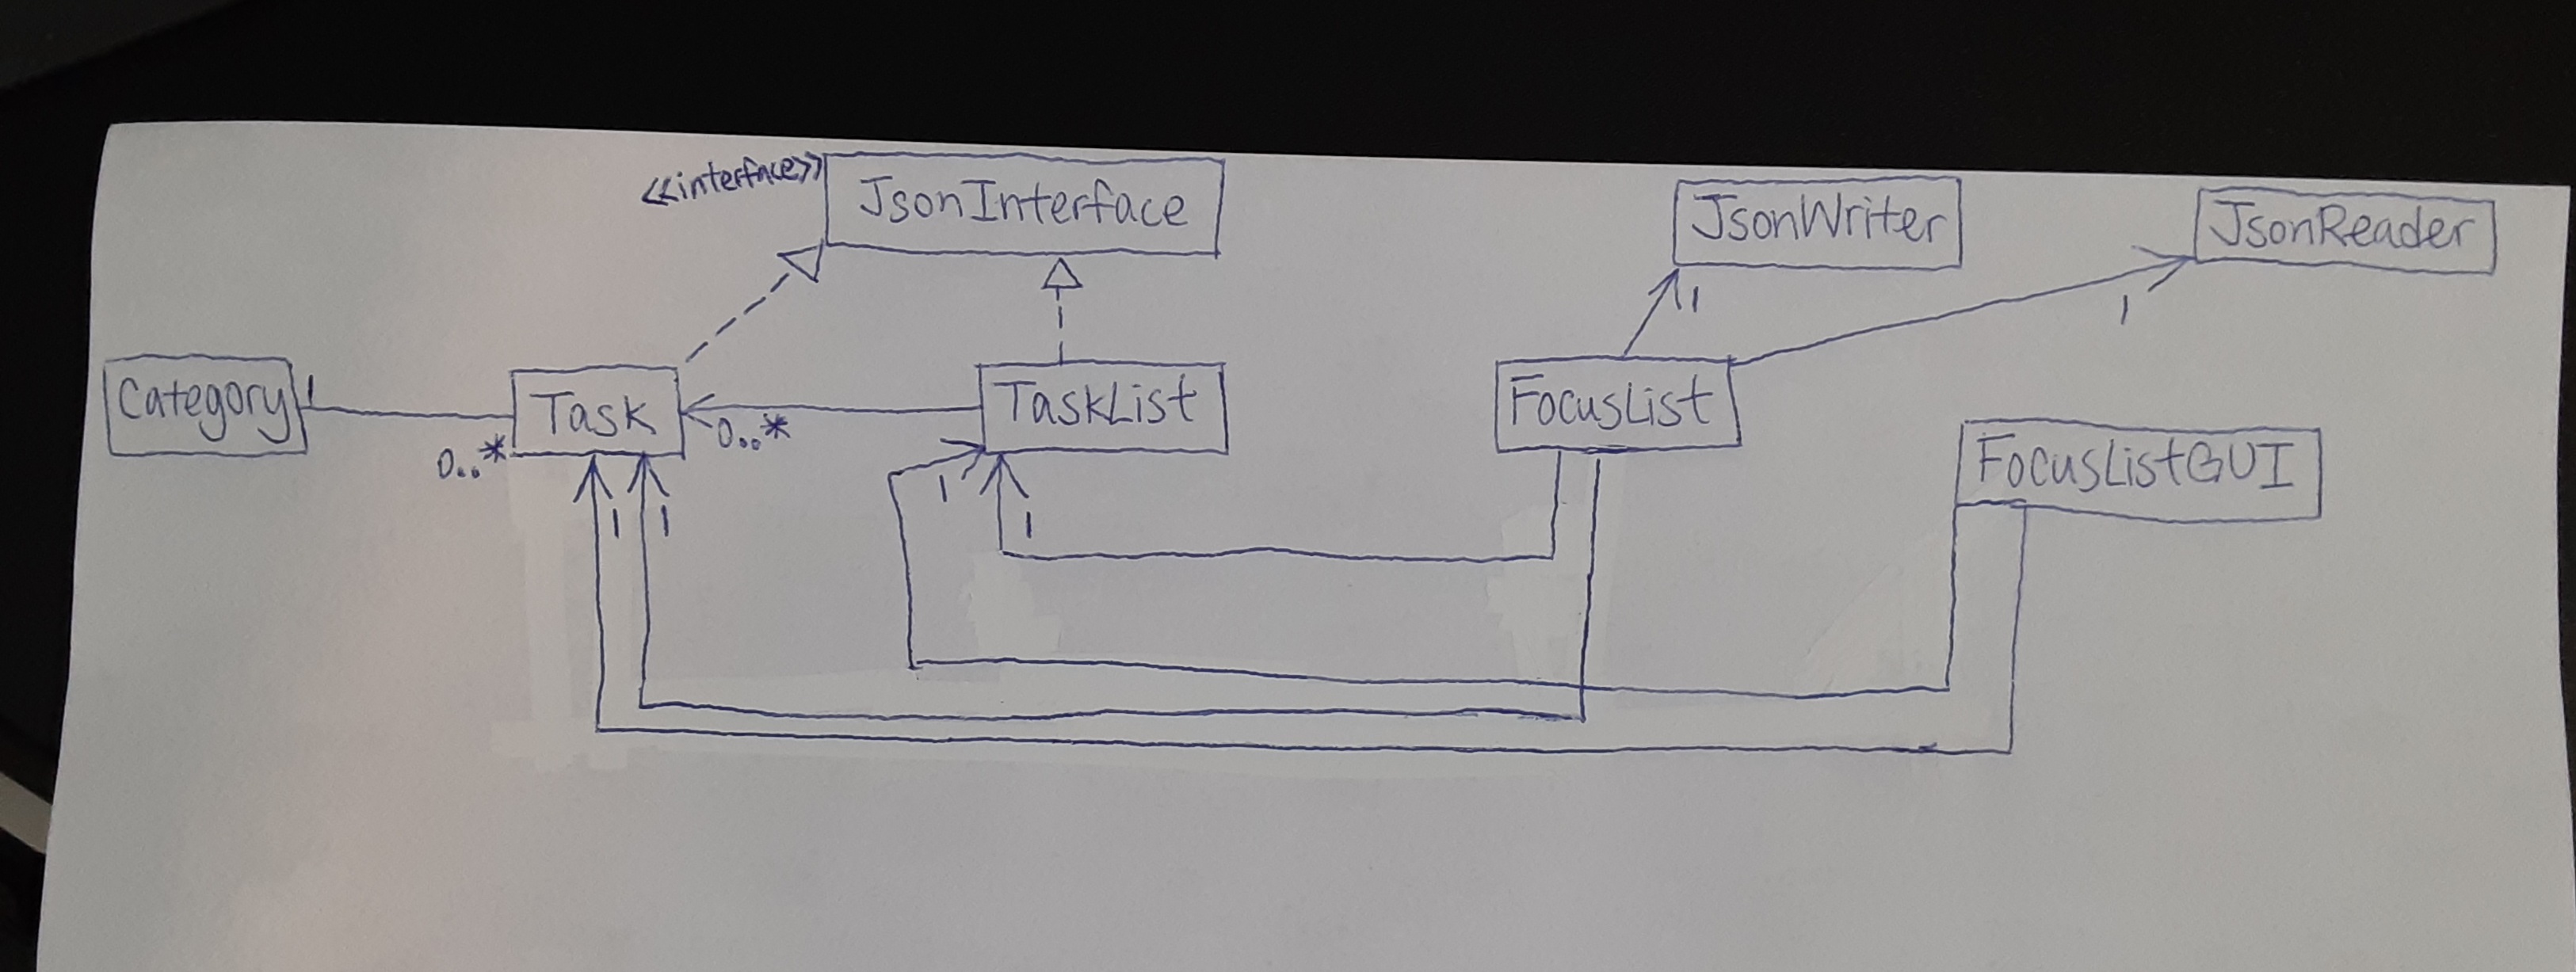 <<interface>>
JsonInterface
JsonWriter
JsonReader
1
1
Category
1
0..*
Task
0..*
TaskList
FocusList
FocusListGUI
1
1
1
1